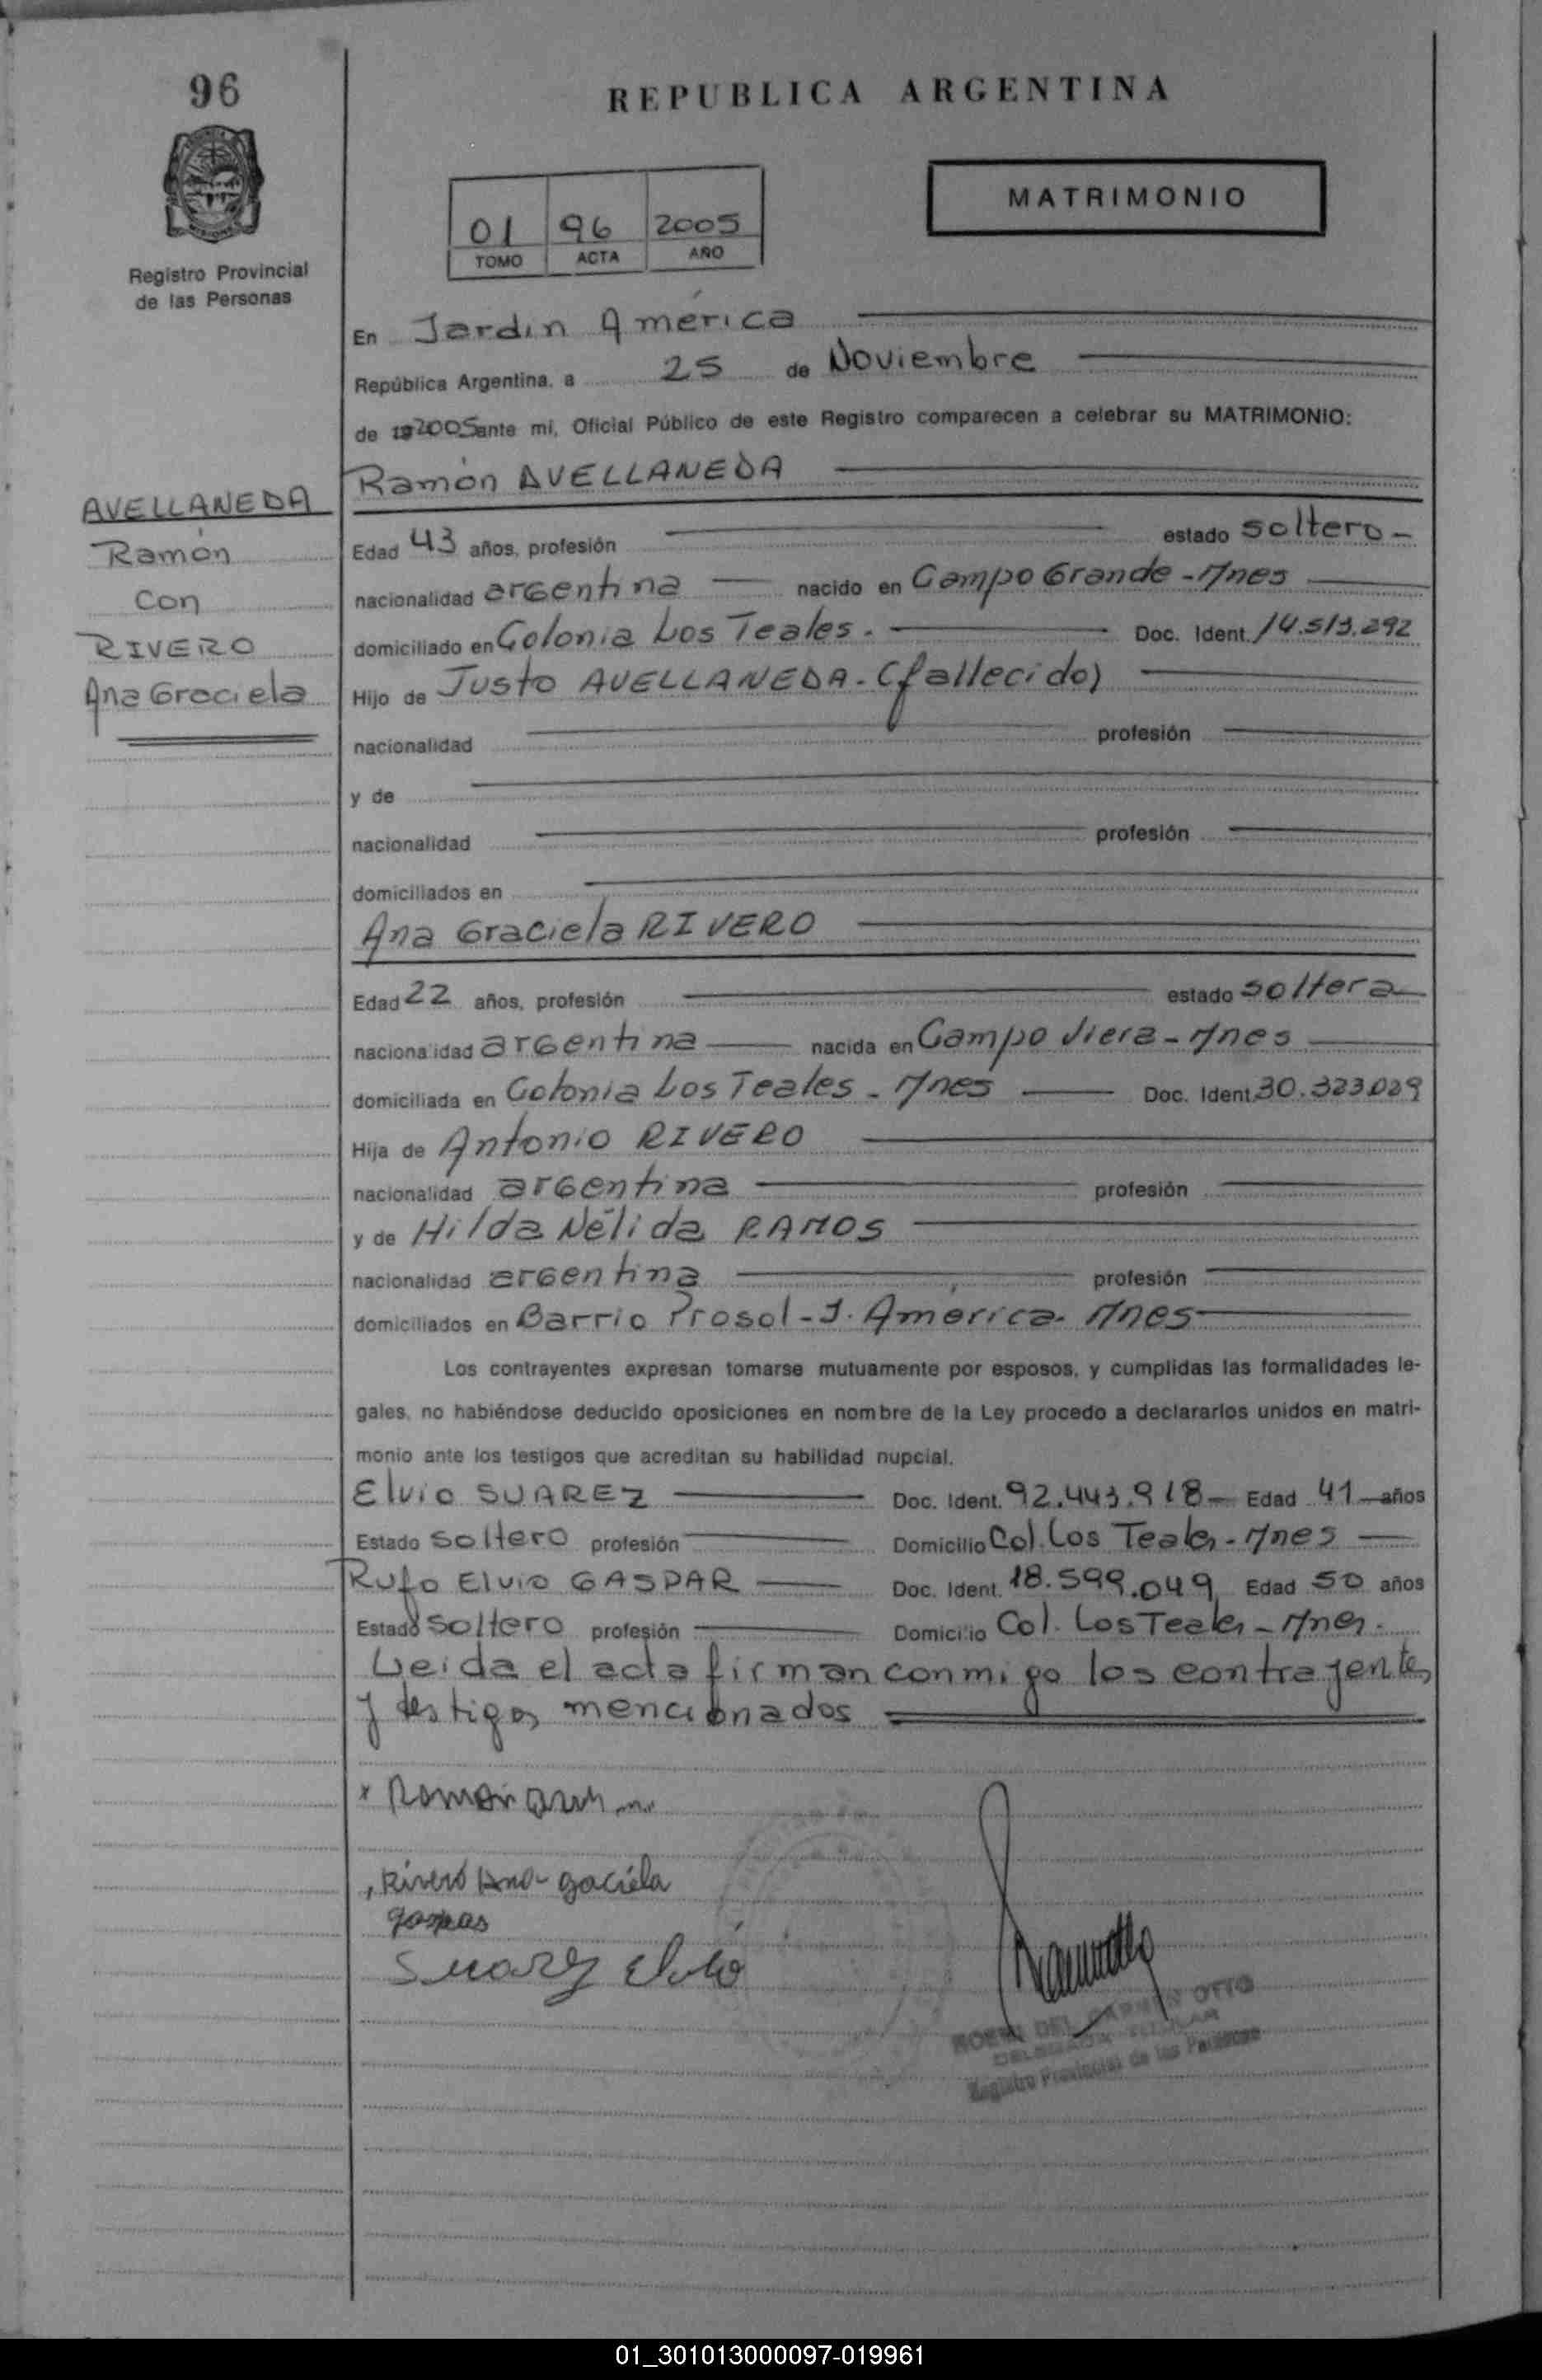 96
REPUBLICA ARGENTINA
MATRIMONIO
01 96 2005
TOMO ACTA AÑO
Registro Provincial
de las Personas
En Jardín América
República Argentina, a 25 de Noviembre
de 192005 ante mí, Oficial Público de este Registro comparecen a celebrar su MATRIMONIO:
Ramón AVELLANEDA
AVELLANEDA
Ramón
con
RIVERO
Ana Graciela
Edad 43 años, profesión estado soltero -
nacionalidad argentina nacido en Campo Grande - Mnes
domiciliado en Colonia Los Teales. Doc. Ident. 14.513.292
Hijo de Justo AVELLANEDA - (fallecido)
nacionalidad profesión
y de
nacionalidad profesión
domiciliados en
Ana Graciela RIVERO
Edad 22 años, profesión estado soltera
nacionalidad argentina nacida en Campo Viera - Mnes
domiciliada en Colonia Los Teales - Mnes Doc. Ident. 30.323.029
Hija de Antonio RIVERO
nacionalidad argentina profesión
y de Hilda Nélida RAMOS
nacionalidad argentina profesión
domiciliados en Barrio Prosol - J. América - Mnes
Los contrayentes expresan tomarse mutuamente por esposos, y cumplidas las formalidades le-
gales, no habiéndose deducido oposiciones en nombre de la Ley procedo a declararlos unidos en matri-
monio ante los testigos que acreditan su habilidad nupcial.
Elvio SUAREZ Doc. Ident. 92.443.918 - Edad 41 años
Estado soltero profesión Domicilio Col. Los Teales - Mnes
Rufo Elvio GASPAR Doc. Ident. 18.599.049 Edad 50 años
Estado soltero profesión Domicilio Col. Los Teales - Mnes.
Leida el acta firman conmigo los contrayentes
y testigos mencionados
x Ramon
Rivero Ana gaciela
gaspar
Suarez Elvio
DEL CARMEN OTTO
Registro Provincial de las Personas
01_301013000097-019961